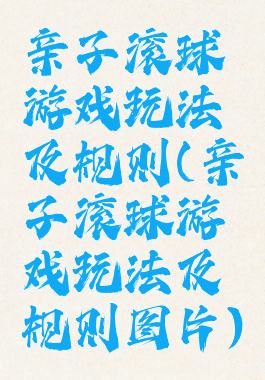 亲子滚球
游戏玩法
及规则(亲
子滚球游
戏玩法及
规则图片)